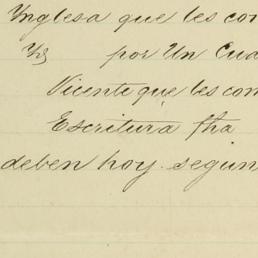 Inglesa que les con
Yd por Un Cua
Vicente que les com
Escritura fha
deben hoy segun